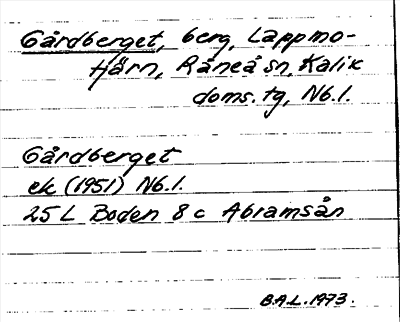 Gårdberget, berg, Lappmo-
tjärn, Råneå sn, Kalix
doms. tg, Nb.l.
Gårdberget
ek (1951) Nb.l.
25 L Boden 8 c Abramsån
B.A.L. 1973.